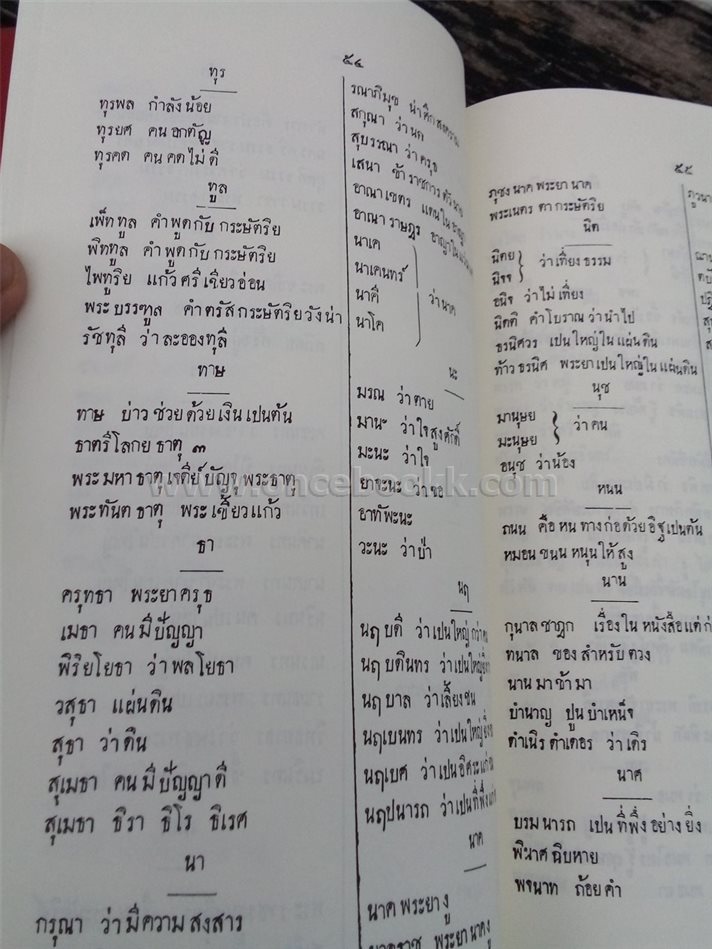 ๕๔
ทุร
ทุรพล กำลังน้อย
ทุรยศ คน อกตัญู
ทุรคต คน คดไม่ ดี
ทูล
เพ็ททูล คำพูดกับ กระษัตริย
พิททูล คำพูดกับ กระษัตริย
ไพทูริย แก้ว ศรี เขียวอ่อน
พระ บรรฑูล คำ ตรัส กระษัตริย วังน่า
รัชทุลี ว่า ละอองทุลี
ทาษ
ทาษ บ่าว ช่วย ด้วย เงิน เปนต้น
ธาตรีโลกย ธาตุ ๓
พระ มหา ธาตุ เจดีย์ บัญจุ พระธาตุ
พระทันต ธาตุ พระ เขี้ยวแก้ว
ธา
ครุทธา พระยา ครุธ
เมธา คน มีปัญญา
พิริยโยธา ว่า พลโยธา
วสุธา แผ่นดิน
สุธา ว่าดิน
สุเมธา คน มีปัญญา ดี
สุเมธา ธิรา ธิโร ธิเรศ
นา
กรุณา ว่ามีความ สงสาร
รณาภิมุข น่า ศึก สงคราม
สกุณา ว่า นก
สุบรรณา ว่า ครุธ
เสนา ข้า ราชการ
อาณา เขตร แดน ใน
อาณา ราษฎร
นาเค
นาเคนทร์
นาคี
นาโค
ว่านาค
นะ
มรณ ว่า ตาย
มานะ ว่าใจ สูงศักดิ์
มะนะ ว่าใจ
ยาจะนะ ว่าขอ
อาทัพะนะ
วะนะ ว่าป่า
นฤ
นฤ บดี ว่าเปนใหญ่ กว่า
นฤ บดินทร ว่าเปนใหญ่
นฤ บาล ว่าเลี้ยงชน
นฤเบนทร ว่าเปนใหญ่ยิ่ง
นฤเบศ ว่าเปนอิศระ
นฤปนารถ ว่าเปนที่พึ่ง
นาค
นาค พระยา งู
พระยา นาค
๕๕
ภุชงนาค พระยา นาค
พระเนตร ตา กระษัตริย
นิต
นิตย
นิจจ
ว่าเที่ยง ธรรม
อนิจ ว่าไม่ เที่ยง
นิตติ คำโบราณ ว่านำไป
ธรนิศวร เปนใหญ่ใน แผ่นดิน
ท้าว ธรนิศ พระยาเปนใหญ่ใน แผ่นดิน
นุช
มานุษย
มะนุษย
ว่าคน
อนุช ว่าน้อง
หนน
ถนน คือ หน ทางก่อด้วย อิฐ เปนต้น
หมอน ขนน หนุนให้ สูง
นาน
กุนาล ชาฎก เรื่องใน หนังสือ แต่
ทนาล ของ สำหรับ ตวง
นาน มา ช้า มา
บำนาญ ปูน บำเหน็จ
ดำเนิร ดำเดอร ว่าเดิร
นาศ
บรม นารถ เปน ที่พึ่ง อย่าง ยิ่ง
พินาศ ฉิบหาย
พจนาท ถ้อย คำ